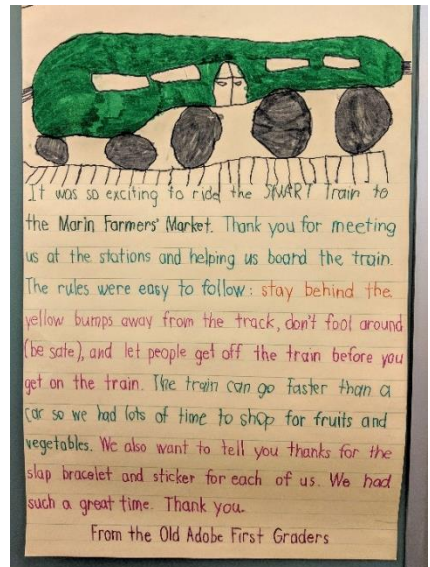 It was so exciting to ride the SMART Train to
the Marin Farmers' Market. Thank you for meeting
us at the stations and helping us board the train.
The rules were easy to follow: stay behind the
yellow bumps away from the track, don't fool around
(be safe), and let people get off the train before you
get on the train. The train can go faster than a
car so we had lots of time to shop for fruits and
vegetables. We also want to tell you thanks for the
slap bracelet and sticker for each of us. We had
such a great time. Thank you.
From the Old Adobe First Graders